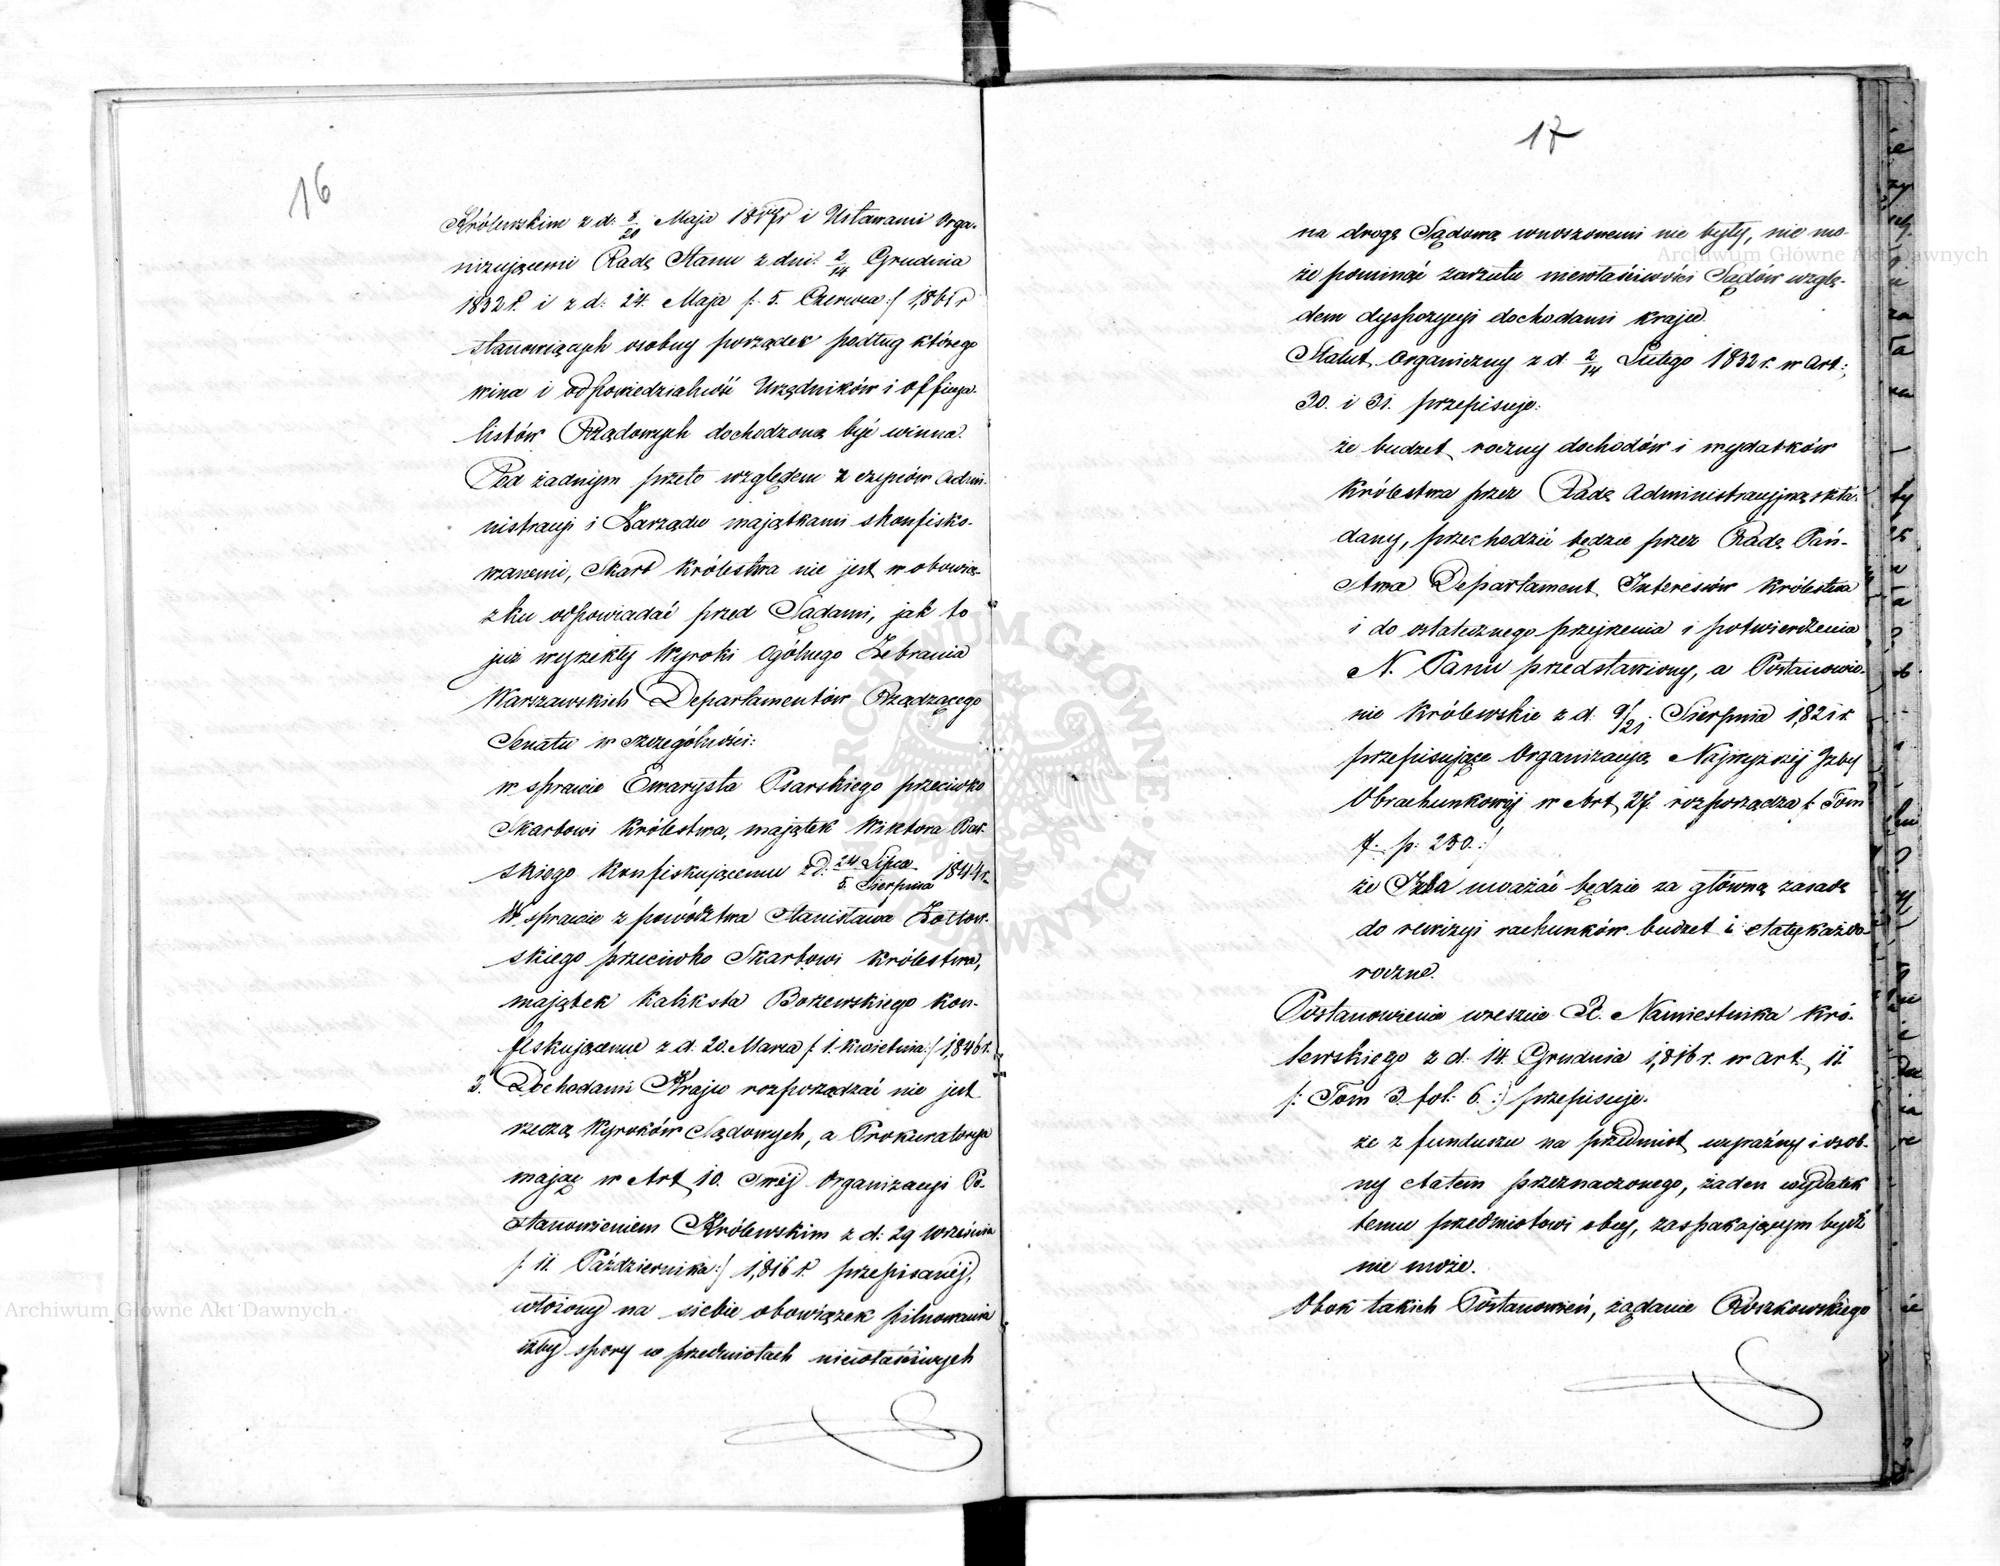 16
Królewskim z d: 8/20 Maja i Ustawami Orga-
nizującemi Radę Stanu z dni: 2/14 Grudnia
1832 r. i z d: 24. Maja /: 5. Czerwca :/ 1861 r
stanowiących osobny porządek podług którego
wina i odpowiedzialność Urzędników i officya-
listów Rządowych dochodzoną być winna.
Pod żadnym przeto względem z czynów Admi-
nistracyi i Zarządu majątkami skonfisko-
wanemi, Skarb Królestwa nie jest w obowią-
zku odpowiadać przed Sądami, jak to
już wyrzekły Wyroki Ogólnego Zebrania
Warszawskich Departamentów Rządzącego
Senatu w szczególności:
w sprawie Ewarysta Psarskiego przeciwko
Skarbowi Królestwa, majątek Wiktora Psar-
skiego konfiskującemu z d: 24 Lipca / 5. Sierpnia 1844 r.
W sprawie z powództwa Stanisława Żółtow-
skiego przeciwko Skarbowi Królestwa,
majątek Kaliksta Borzewskiego kon-
fiskującemu z d: 20. Marca /: 1. Kwietnia :/ 1846 r.
3. Dochodami Kraju rozporządzać nie jest
rzeczą Wyroków Sądowych, a Prokuratorya
mając w Art. 10. swéj Organizacyi Po-
stanowieniem Królewskim z d: 29 Września
/: 11. Października :/ 1816 r. przepisanéj,
włożony na siebie obowiązek pilnowania
iżby spory w przedmiotach niewłaściwych
17
na drogę Sądową wnoszonemi nie były, nie mo-
że pominąć zarzutu niewłaściwości Sądów wzglę-
dem dyspozycyi dochodami kraju.
Statut Organiczny z d. 2/14 Lutego 1832 r. w Art:
30. i 31. przepisuje:
że budżet roczny dochodów i wydatków
Królestwa przez Radę Administracyjną skła-
dany, przechodzić będzie przez Radę Pań-
stwa Departament Interesów Królestwa
i do ostatecznego przejrzenia i potwierdzenia
N. Panu przedstawiony, a Postanowie-
nie Królewskie z d: 9/21 Sierpnia 1821 r.
przepisujące Organizacyą Najwyższéj Izby
Obrachunkowéj w Art. 27. rozporządza /: Tom
7. p: 250. :/
że Izba uważać będzie za główną zasadę
do rewizyi rachunków budżet i etaty każdo-
roczne.
Postanowienie wreszcie X. Namiestnika Kró-
lewskiego z d: 14. Grudnia 1816 r. w Art. 11
/: Tom 3. fol: 6. :/ przepisuje.
że z funduszu na przedmiot wyraźny i osob-
ny etatem przeznaczonego, żaden wydatek
temu przedmiotowi obcy, zaspakajającym bydź
nie może.
Obok takich Postanowień, żądanie Roszkowskiego
ARCHIWUM GŁÓWNE AKT DAWNYCH
Archiwum Główne Akt Dawnych
Archiwum Główne Akt Dawnych